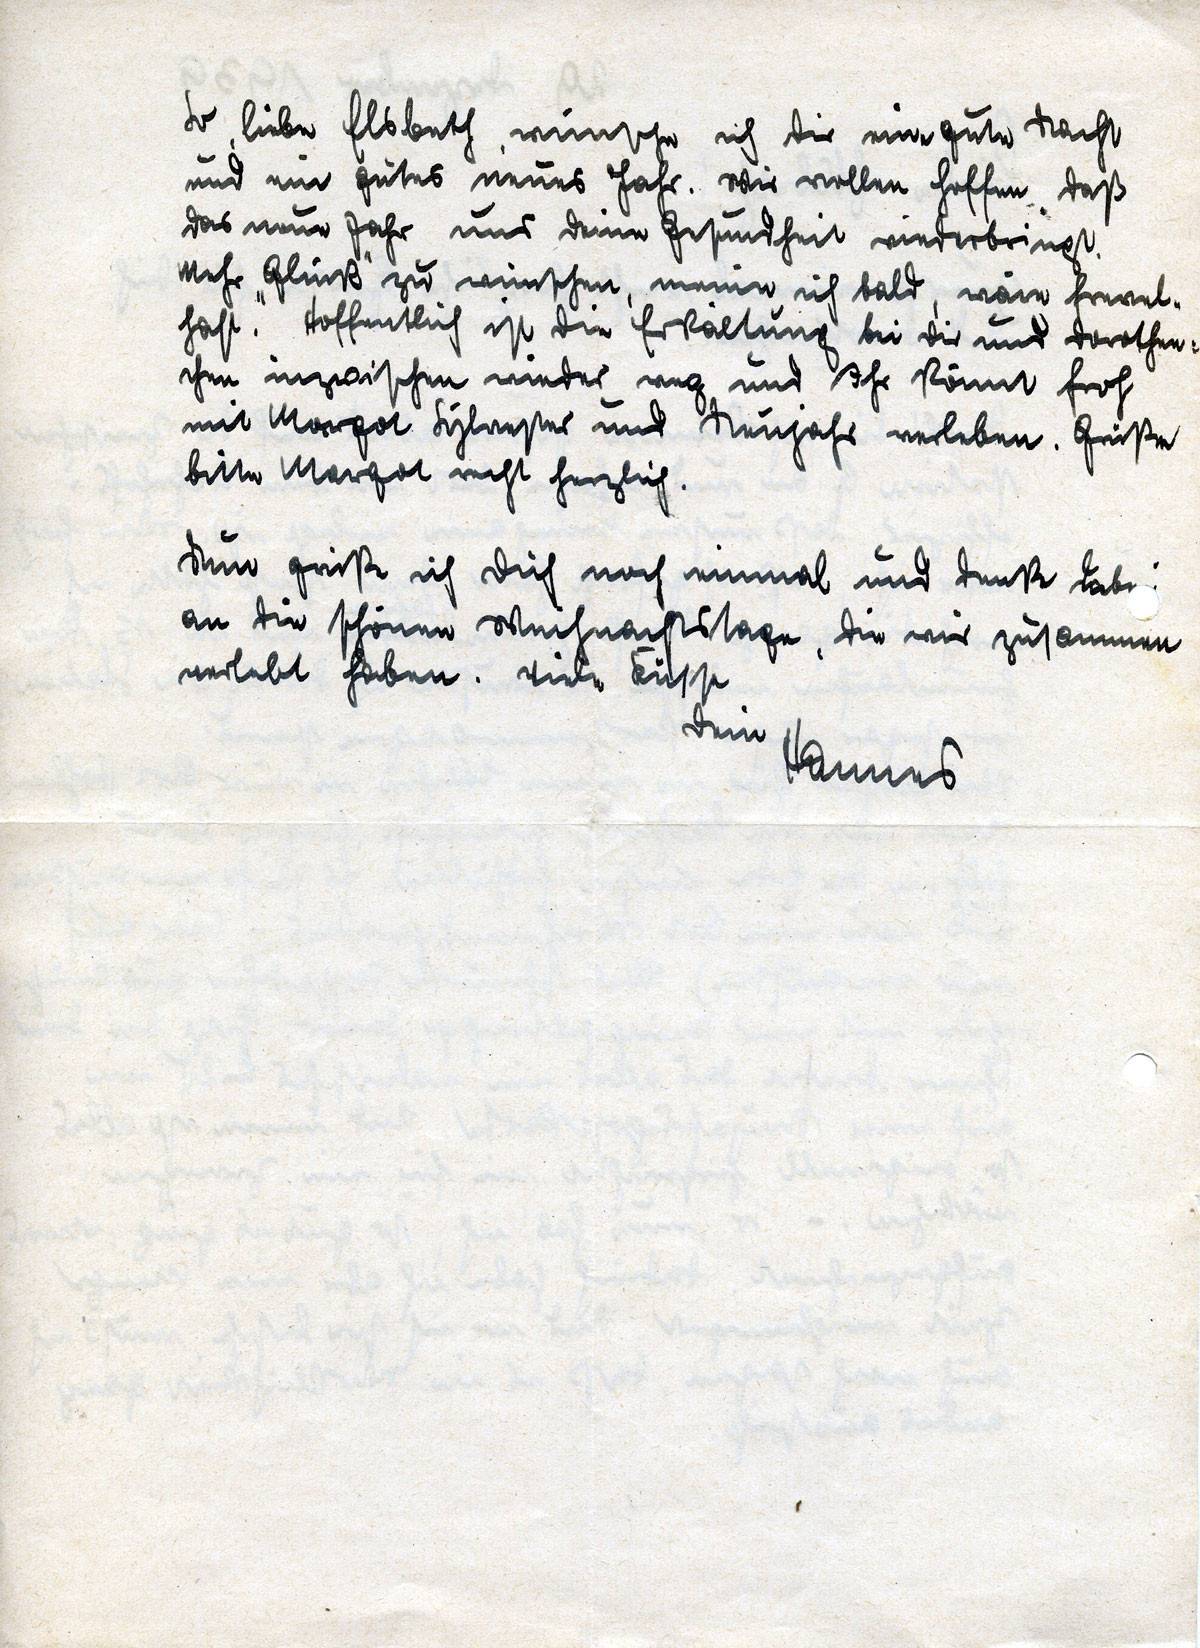 So, liebe Elsbeth, wünsche ich Dir eine gute Nacht
und ein gutes neues Jahr. Wir wollen hoffen, daß
das neue Jahr uns deine Gesundheit wiederbringt.
Mehr „Glück“ zu wünschen, meine ich bald, wäre frevel-
haft. Hoffentlich ist die Erkältung bei Dir und Dorothen-
chen inzwischen wieder weg und Ihr könnt froh
mit Margot Sylvester und Neujahr verleben. Grüße
bitte Margot recht herzlich.
Nun grüße ich Dich noch einmal und denke dabei
an die schönen Weihnachtstage, die wir zusammen
verlebt haben. Viele Küsse
Dein
Hannes